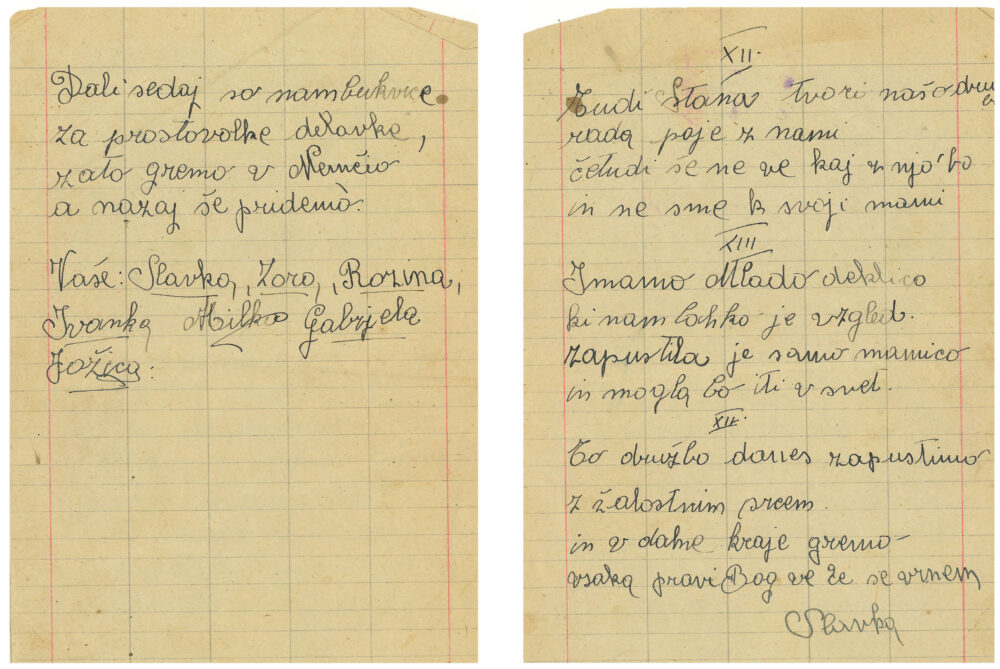 Dali sedaj so nam bukvice
za prostovolke delavke,
zato gremo v Nemčio
a nazaj še pridemo.
Vaše: Slavka, Zora, Rozina,
Ivanka Milka Gabrjela
Jožica.
XII.
Tudi Stana tvori našo dru
rada poje z nami
četudi še ne ve kaj z njo bo
in ne sme k svoji mami
XIII
Imamo Mlado deklico
ki nam lahko je vzgled.
zapustila je samo mamico
in mogla bo iti v svet.
XII.
To družbo danes zapustimo
z žalostnim srcem.
in v dalne kraje gremo
vsaka pravi Bog ve če se vrnem
Slavka